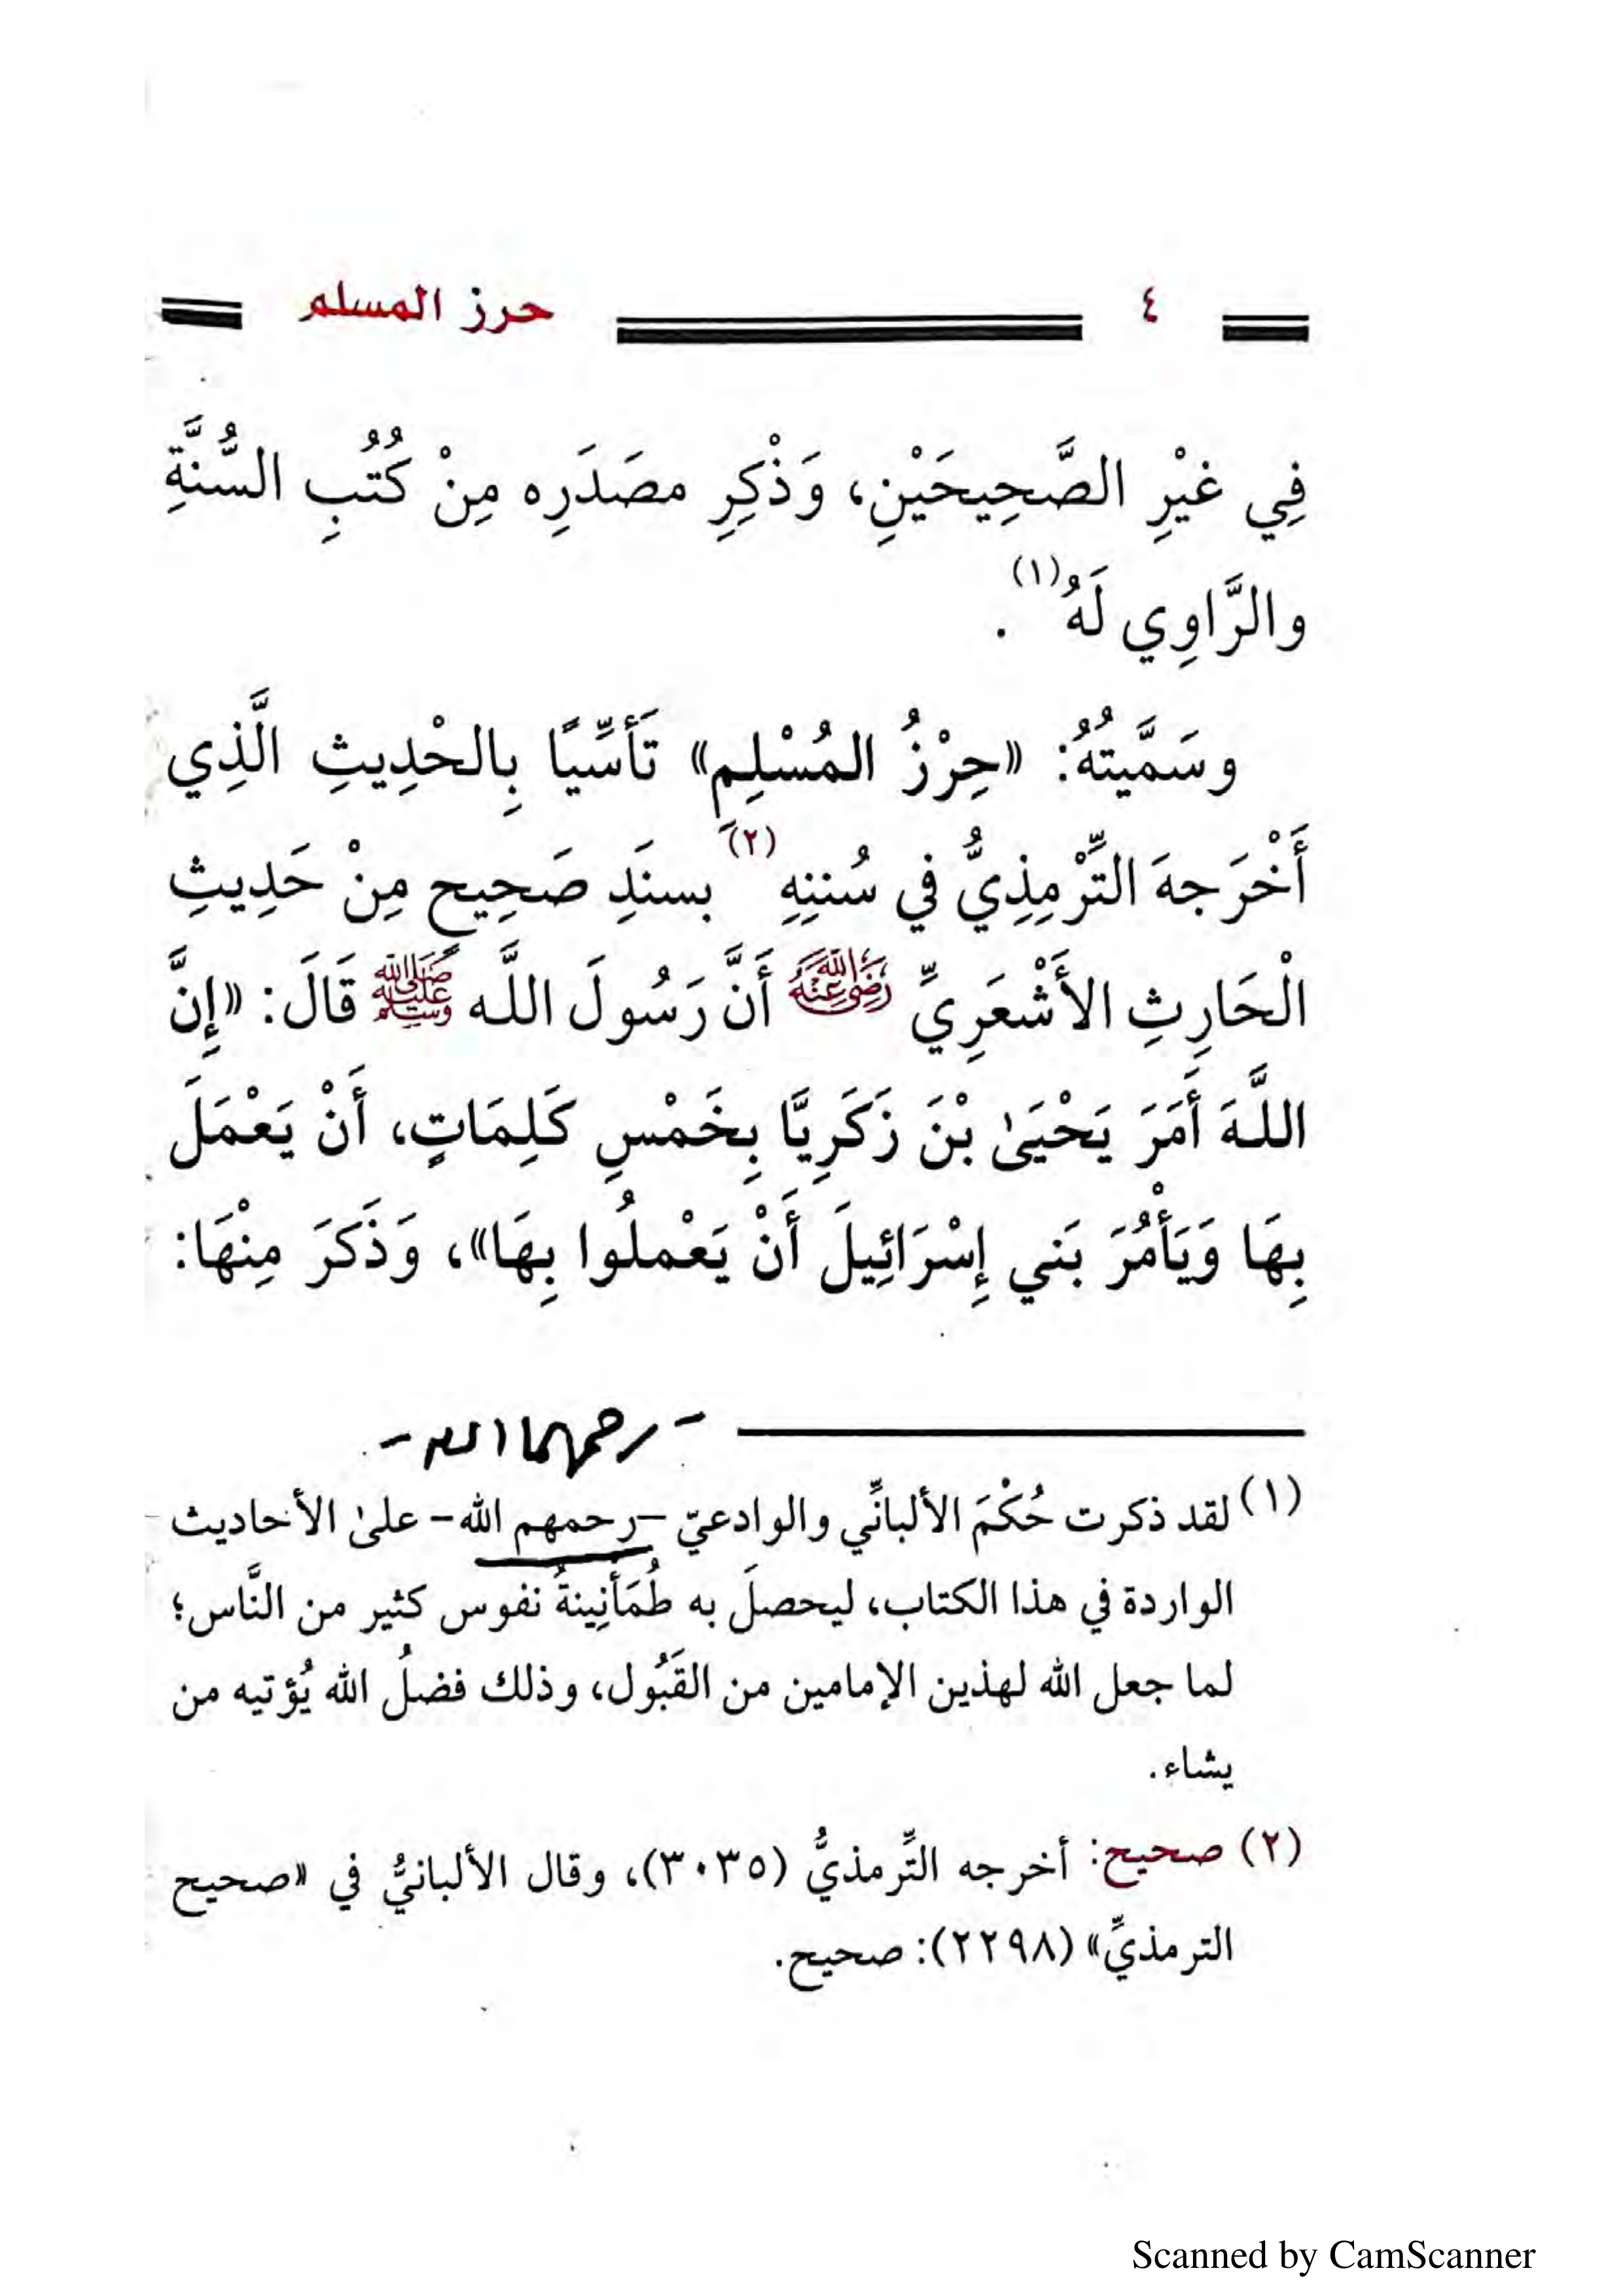 ٤ حرز المسلم
فِي غيْرِ الصَّحِيحَيْنِ، وَذْكِرِ مصَدَرِه مِنْ كُتُبِ السُّنَّةِ
والرَّاوِي لَهُ(١).
وسَمَّيتُهُ: «حِرْزُ المُسْلِمِ» تَأسِّيًا بِالحْدِيثِ الَّذِي
أَخْرَجهَ التِّرْمِذِيُّ في سُننِهِ(٢) بسنَدِ صَحِيحٍ مِنْ حَدِيثِ
الْحَارِثِ الأَشْعَرِيِّ رَضِيَ اللَّهُ عَنْهُ أَنَّ رَسُولَ اللَّه ﷺ قَالَ: «إِنَّ
اللَّهَ أَمَرَ يَحْيَىٰ بْنَ زَكَرِيَّا بِخَمْسِ كَلِمَاتٍ، أَنْ يَعْمَلَ
بِهَا وَيَأْمُرَ بَني إِسْرَائِيلَ أَنْ يَعْملُوا بِهَا»، وَذَكَرَ مِنْهَا:
- رحمهما الله -
(١) لقد ذكرت حُكْمَ الألبانِّي والوادعيّ -رحمهم الله- علىٰ الأحاديث
الواردة في هذا الكتاب، ليحصلَ به طُمَأنِينةُ نفوس كثير من النَّاس؛
لما جعل الله لهذين الإمامين من القَبُول، وذلك فضلُ الله يُؤتيه من
يشاء.
(٢) صحيح: أخرجه التِّرمذيُّ (٣٠٣٥)، وقال الألبانيُّ في «صحيح
الترمذيِّ» (٢٢٩٨): صحيح.
Scanned by CamScanner